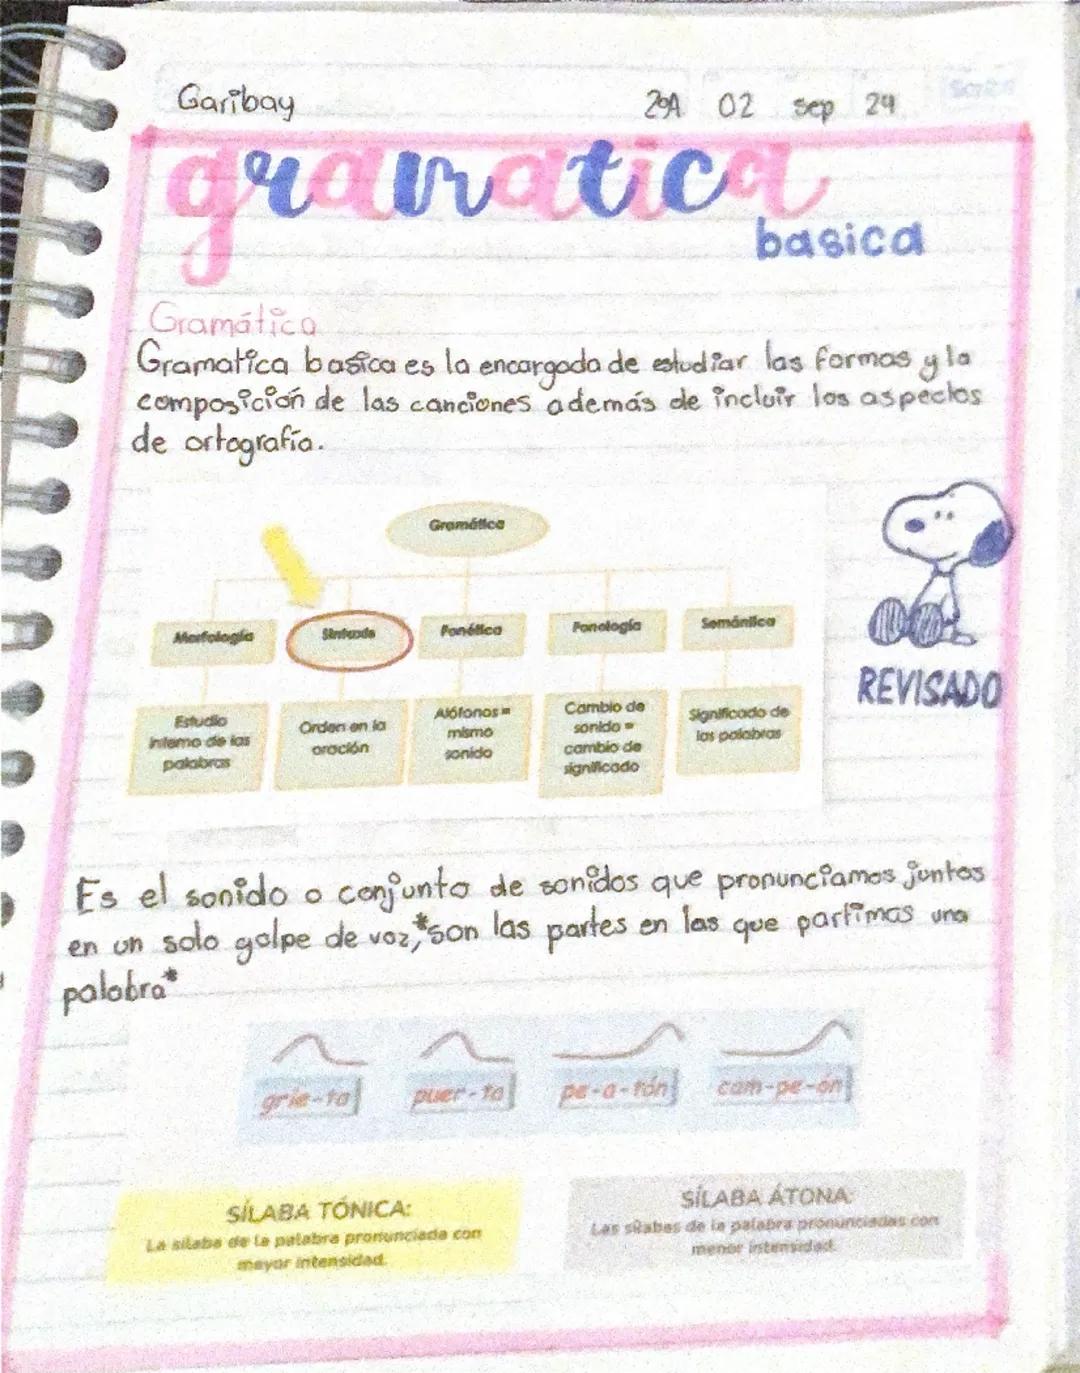 Garibay
2ºA 02 sep 24
gramatica
basica
Gramática
Gramatica basica es la encargada de estudiar las formas y la
composición de las canciones además de incluir los aspectos
de ortografía.
Gramática
Morfología Sintaxis Fonética Fonología Semántica
Estudio interno de las palabras
Orden en la oración
Alófonos = mismo sonido
Cambio de sonido = cambio de significado
Significado de las palabras
REVISADO
Es el sonido o conjunto de sonidos que pronunciamos juntos
en un solo golpe de voz,*son las partes en las que partimos una
palabra*
grie-ta puer-ta pe-a-tón cam-pe-ón
SÍLABA TÓNICA:
La sílaba de la palabra pronunciada con
mayor intensidad.
SÍLABA ÁTONA:
Las sílabas de la palabra pronunciadas con
menor intensidad.